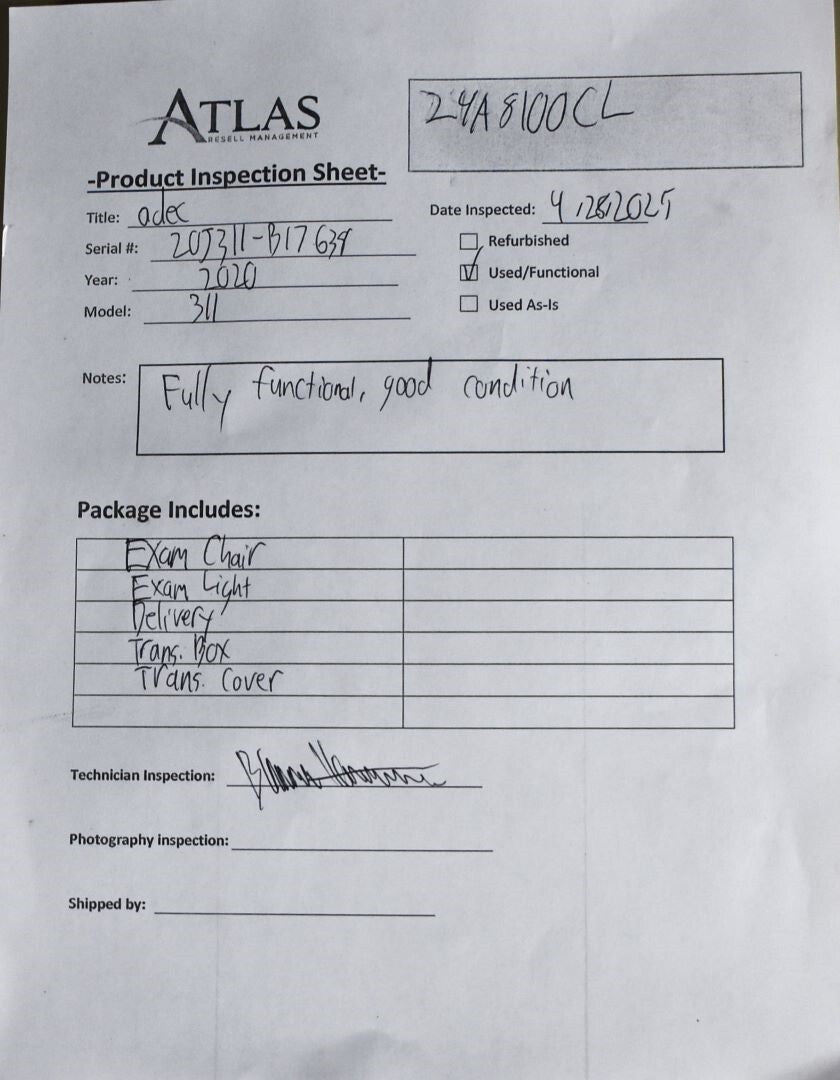 ATLAS
RESELL MANAGEMENT
24A8100CL
-Product Inspection Sheet-
Title: adec
Date Inspected: 4/28/2025
Serial #: 20J311-B17639
Refurbished
Year: 2020
Used/Functional
Model: 311
Used As-Is
Notes: Fully functional, good condition
Package Includes:
Exam Chair
Exam Light
Delivery
Trans. Box
Trans. Cover
Technician Inspection:
Photography inspection:
Shipped by: